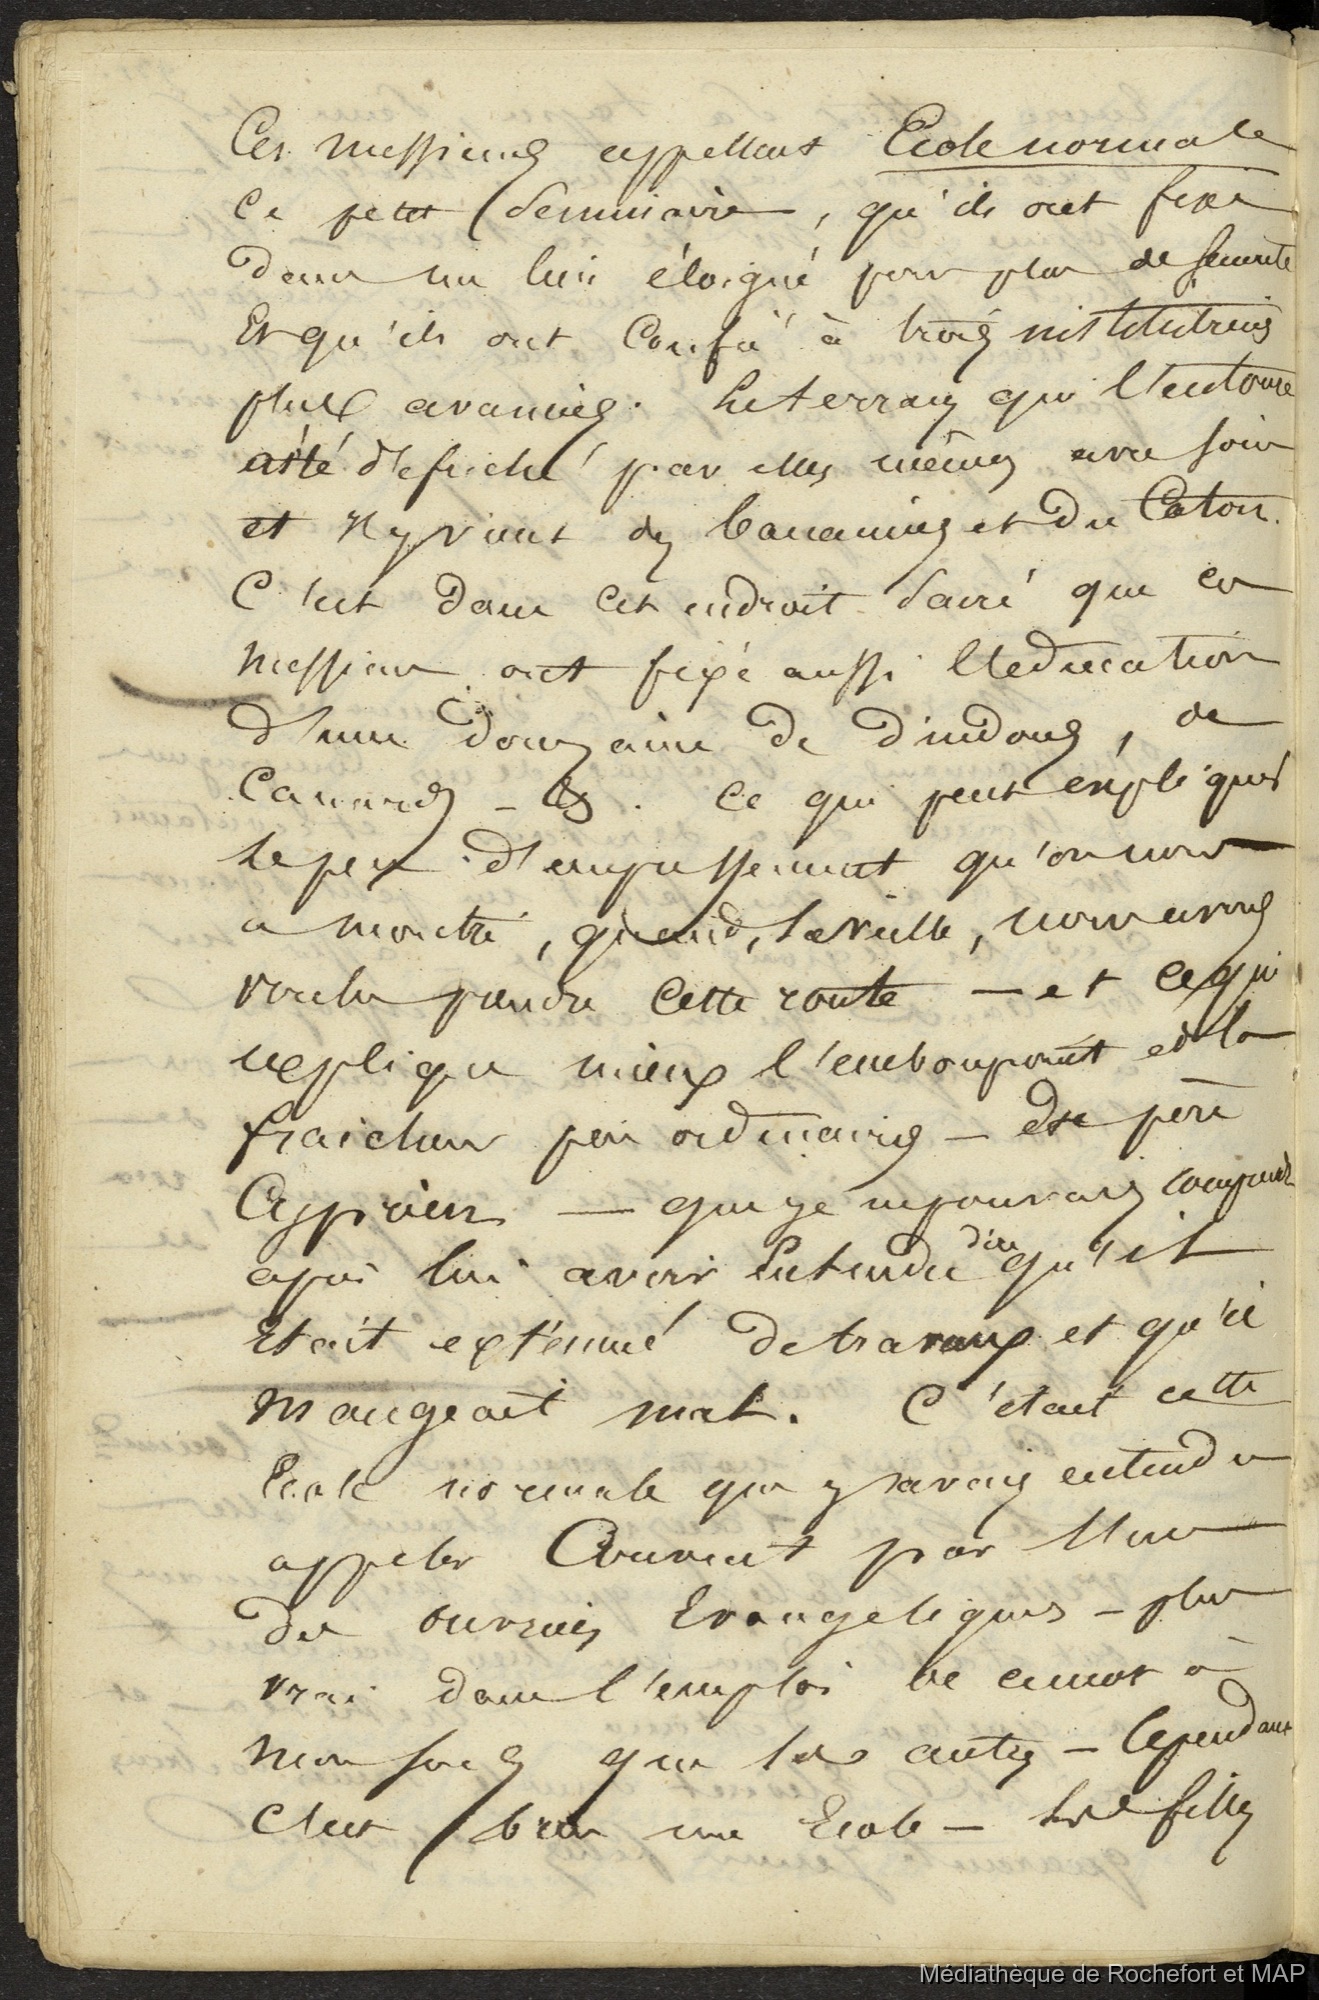 Ces messieurs appellent Ecole normale
ce petit Séminaire, qu'ils ont fixé
dans un lieu éloigné pour plus de sécurité
Et qu'ils ont Confié à trois institutrices
plus avancées. Le terrain qui l'entoure
a été défriché par elles mêmes avec soin
et il y vient des bananiers et du Coton.
C'est dans cet endroit sacré que ces
messieurs ont fixé aussi l'education
d'une douzaine de dindons, de
Canards - &. Ce qui peut expliquer
le peu d'empressement qu'on nous
a montré, quand, la veille, nous avons
voulu prendre cette route - et ce qui
explique mieux l'embonpoint et la
fraicheur peu ordinaires - du père
Cyprien - que je ne pouvais comprendre
après lui avoir Entendu dire qu'il
Etait exténué de travaux et qu'il
mangeait mal. C'était cette
Ecole normale que j'avais entendu
appeler Couvent par l'un
des ouvriers Evangeliques - plus
vrai dans l'emploi de ce mot à
mon sens que les autres - Cependant
C'est bien une Ecole - les filles
Médiathèque de Rochefort et MAP